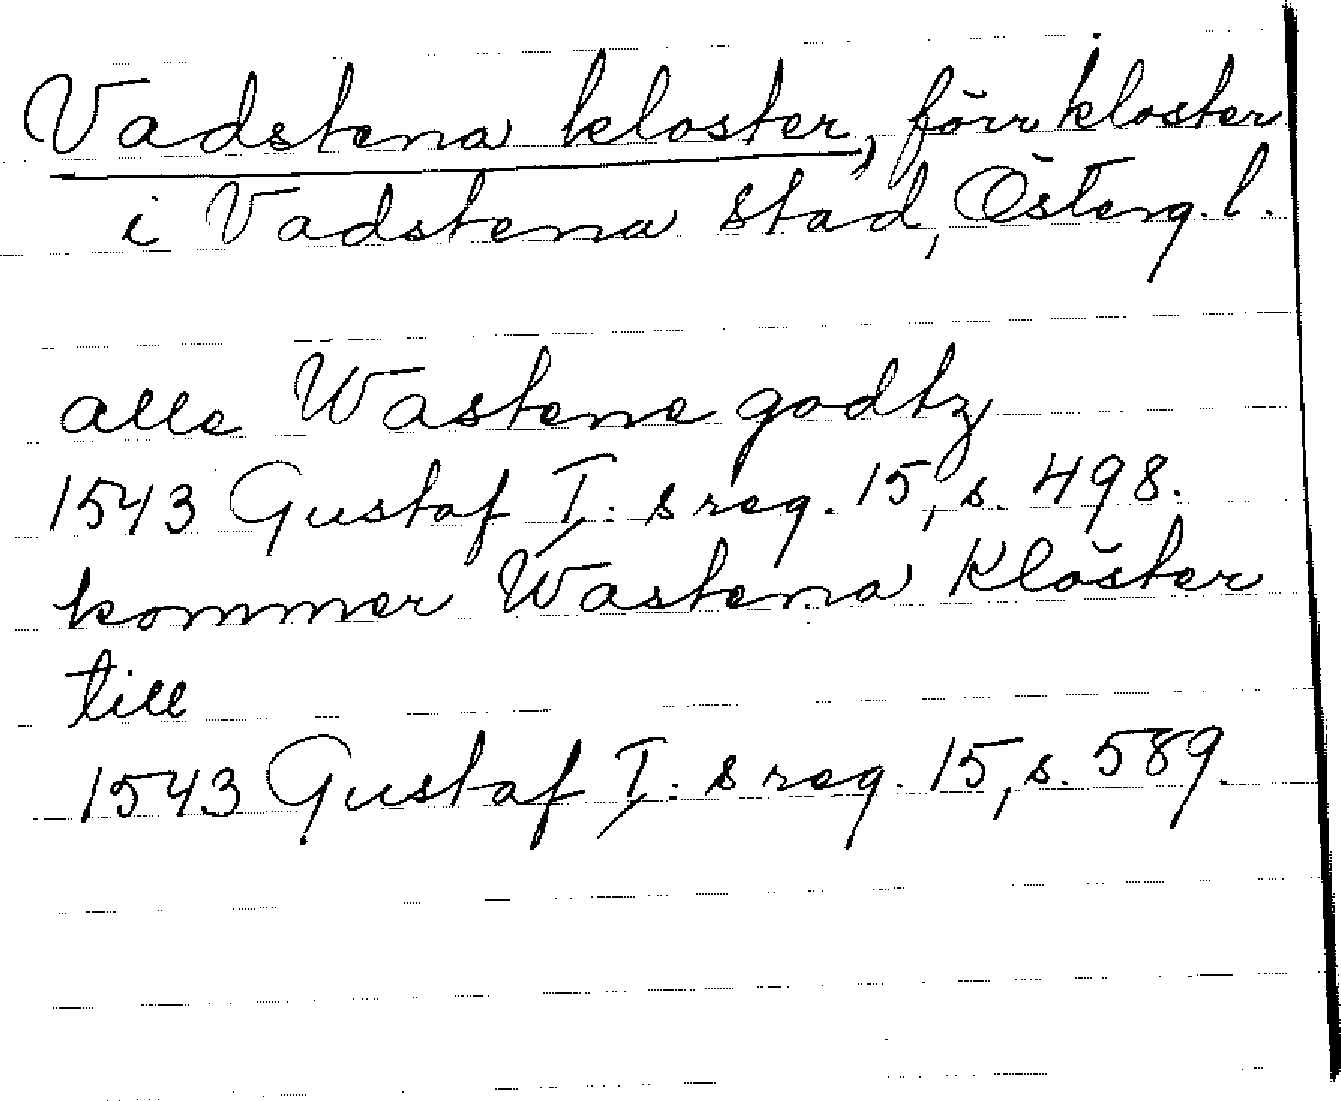 Vadstena kloster, förr kloster
i Vadstena stad, Österg. l.
alle Wastene godtz
1543 Gustaf I:s reg. 15, s. 498.
kommer Wastena Kloster
till
1543 Gustaf I:s reg. 15, s. 589.